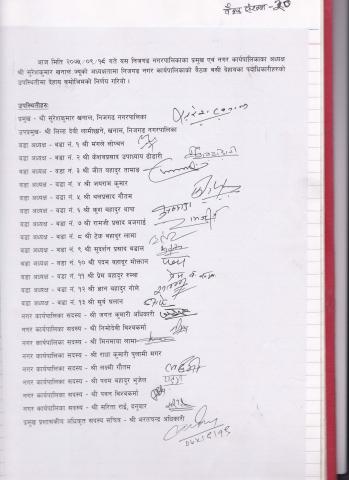 बैठक संख्या- २०
आज मिति २०७५/०९/१९ गते यस निजगढ नगरपालिकाका प्रमुख एवं नगर कार्यपालिकाका अध्यक्ष
श्री सुरेशकुमार खनाल ज्यूको अध्यक्षतामा निजगढ नगर कार्यपालिकाको बैठक बसी देहायका पदाधिकारीहरुको
उपस्थितीमा देहाय बमोजिमको निर्णय गरियो ।
उपस्थितीहरुः
प्रमुख - श्री सुरेशकुमार खनाल, निजगढ नगरपालिका
उपप्रमुख- श्री लिला देवी लामीछाने, खनाल, निजगढ नगरपालिका
वडा अध्यक्ष - वडा नं. १ श्री मंगले लोप्चन
वडा अध्यक्ष - वडा नं. २ श्री केशवप्रसाद उपाध्याय ढोडारी
वडा अध्यक्ष - वडा नं. ३ श्री जीत बहादुर तामाङ
वडा अध्यक्ष - वडा नं. ४ श्री जयराम कुमार
वडा अध्यक्ष - वडा नं. ५ श्री धनप्रसाद गौतम
वडा अध्यक्ष - वडा नं. ६ श्री बुध बहादुर थापा
वडा अध्यक्ष - वडा नं. ७ श्री रामजी प्रसाद बजगाई
वडा अध्यक्ष - वडा नं. ८ श्री टेक बहादुर लामा
वडा अध्यक्ष - वडा नं. ९ श्री सुदर्शन प्रसाद बढाल
वडा अध्यक्ष - वडा नं. १० श्री पदम बहादुर मोक्तान
वडा अध्यक्ष - वडा नं. ११ श्री प्रेम बहादुर रुम्बा
वडा अध्यक्ष - वडा नं. १२ श्री ज्ञान बहादुर गोले
वडा अध्यक्ष - वडा नं. १३ श्री सुर्य घलान
नगर कार्यपालिका सदस्य - श्री जगत कुमारी अधिकारी
नगर कार्यपालिका सदस्य - श्री निमोदेवी बिश्वकर्मा
नगर कार्यपालिका सदस्य - श्री मिनमाया लामा
नगर कार्यपालिका सदस्य - श्री राधा कुमारी पुलामी मगर
नगर कार्यपालिका सदस्य - श्री लक्ष्मी गौतम
नगर कार्यपालिका सदस्य - श्री पदम बहादुर भुजेल
नगर कार्यपालिका सदस्य - श्री पवन बिश्वकर्मा
नगर कार्यपालिका सदस्य - श्री सरिता राई, दनुवार
प्रमुख प्रशासकीय अधिकृत सदस्य सचिव - श्री भरतचन्द अधिकारी